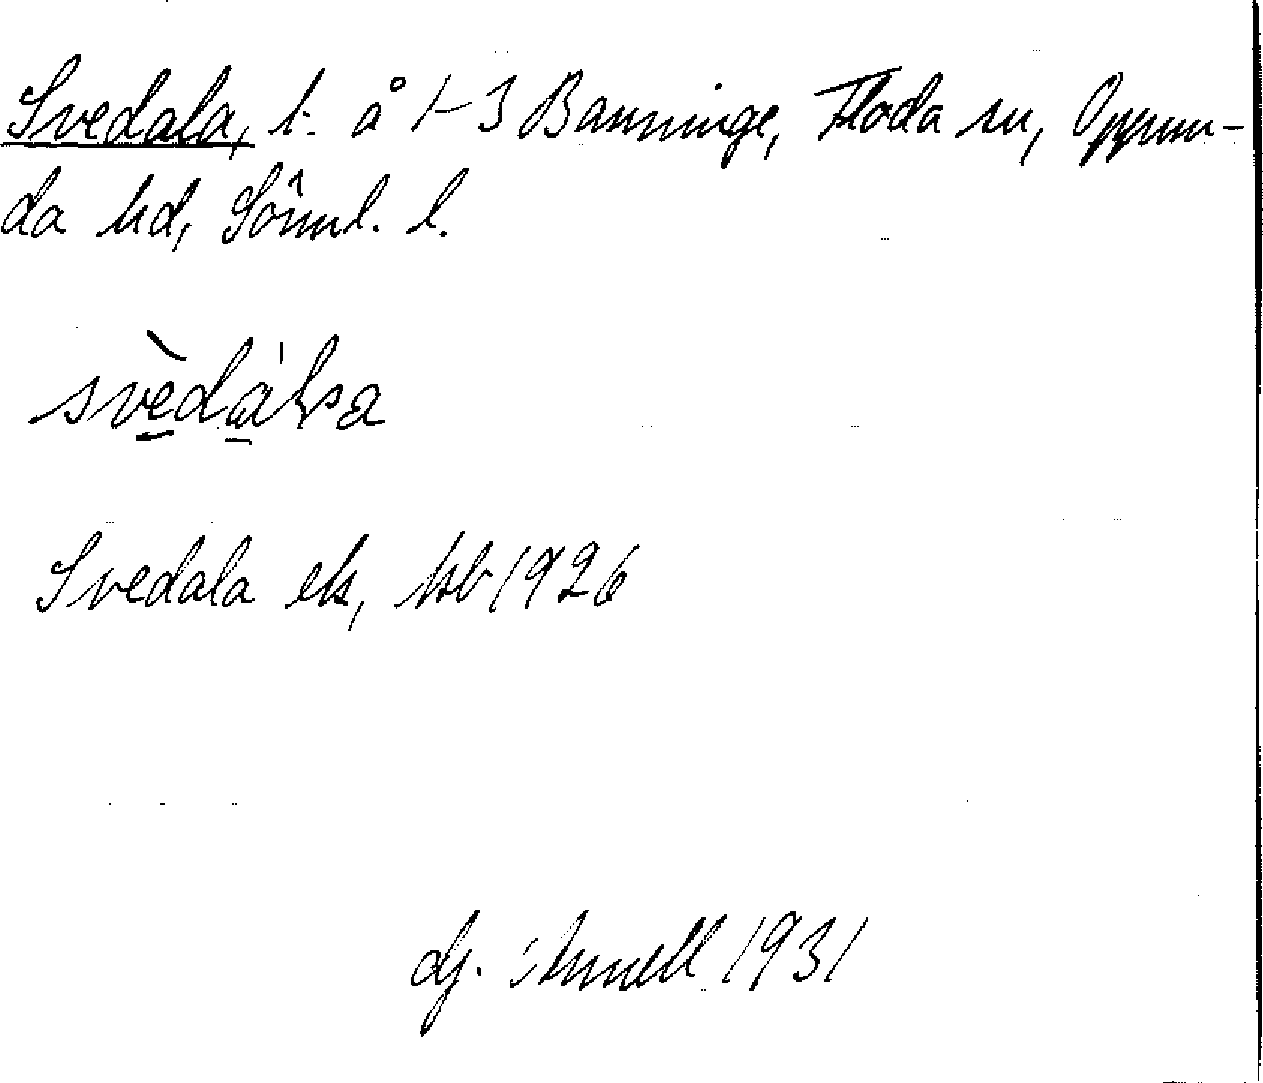 Svedala, t. å 1-3 Banninge, Floda sn, Oppun-
da hd, Sörml. l.
svèdàl̥sa
Svedala ek, hsb 1926
Hj. Annell 1931